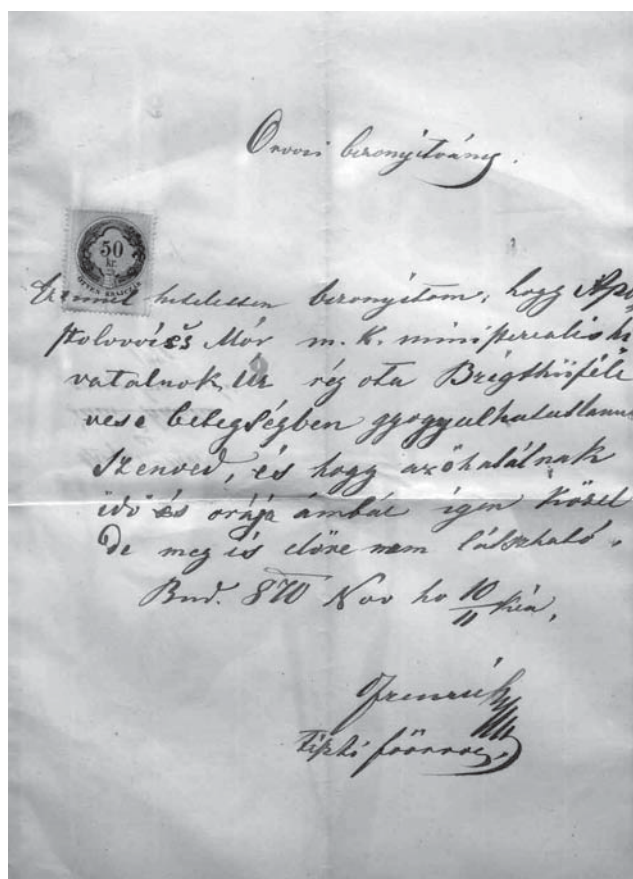 Orvosi bizonyítvány.
50
kr.
ÖTVEN KRAJCZÁR
Ezennel hitelessen bizonyitom, hogy Apo-
stolovics Mór m. k. ministerealis hi
vatalnok Úr rég ota Brigthiiféle
vese betegségben gyogyulhatatlanul
szenved, és hogy azöhalálnak
idö és orája ámbár igen közel
de meg is elöre nem látszható.
Bud. 870 Nov ho 10/11 kén,
főorvos